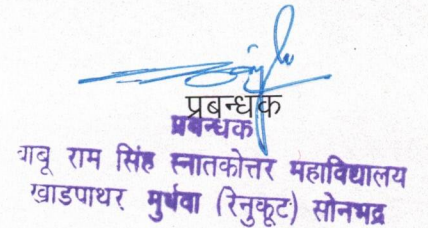 प्रबन्धक
प्रबन्धक
बाबू राम सिंह स्नातकोत्तर महाविद्यालय
खाडपाथर मुर्धवा (रेनुकूट) सोनभद्र